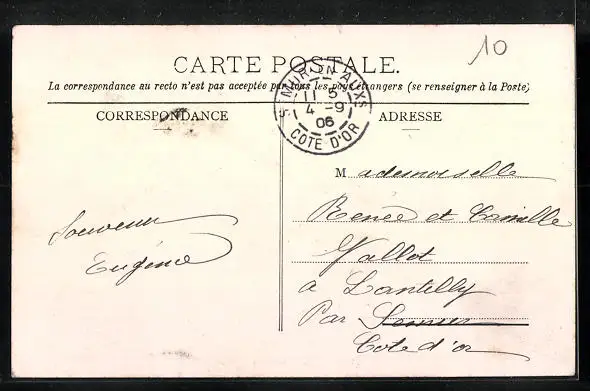 10
CARTE POSTALE.
La correspondance au recto n'est pas acceptée par tous les pays étrangers (se renseigner à la Poste)
SEMUR-EN-AUXS
11 - 5
4 - 9
06
COTE D'OR
CORRESPONDANCE
Souvenir
Eugénie
ADRESSE
Mademoiselle
Renée et Camille
Vallot
à Lantilly
Par Semur
Cote d'or